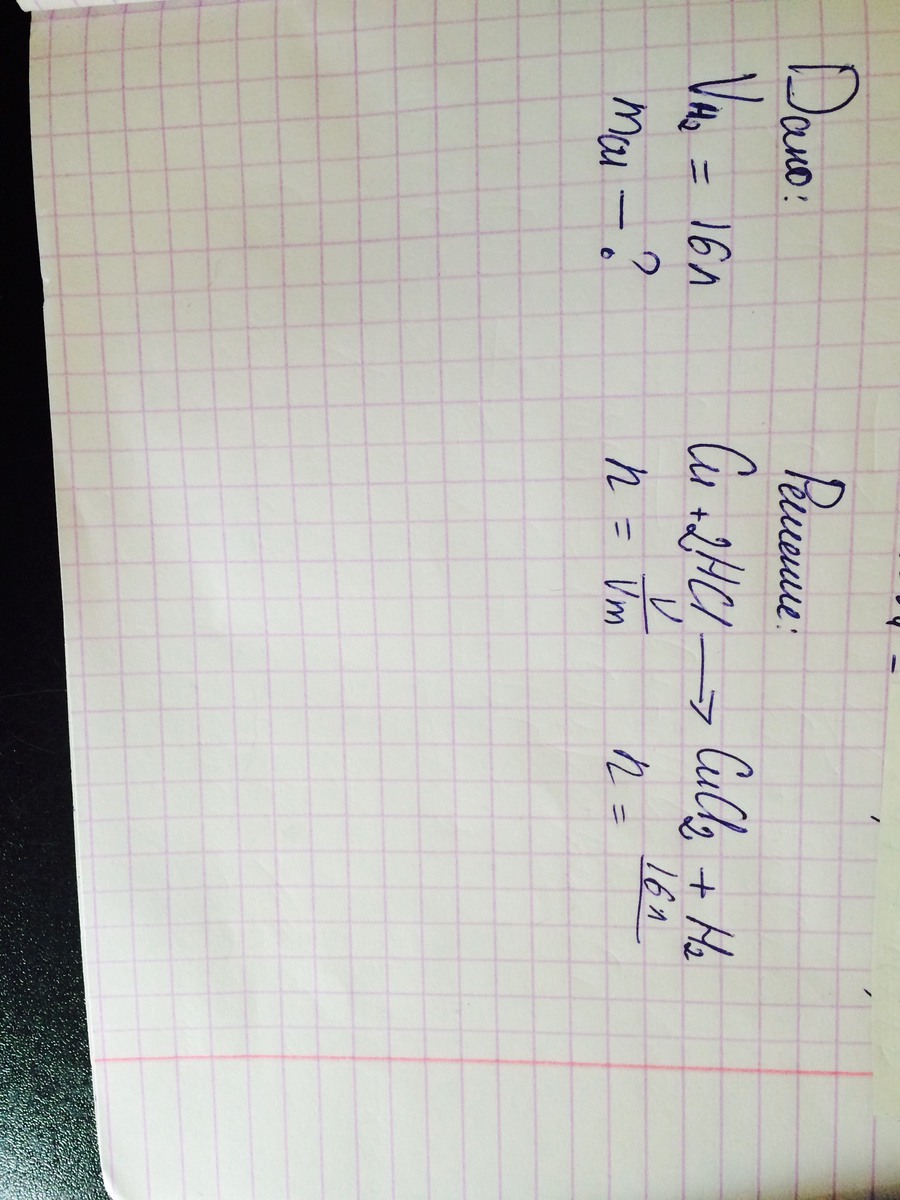 Дано:
V H₂ = 16 л
m Cu — ?
Решение:
Cu + 2HCl ⟶ CuCl₂ + H₂
n = V/Vm n = 16 л